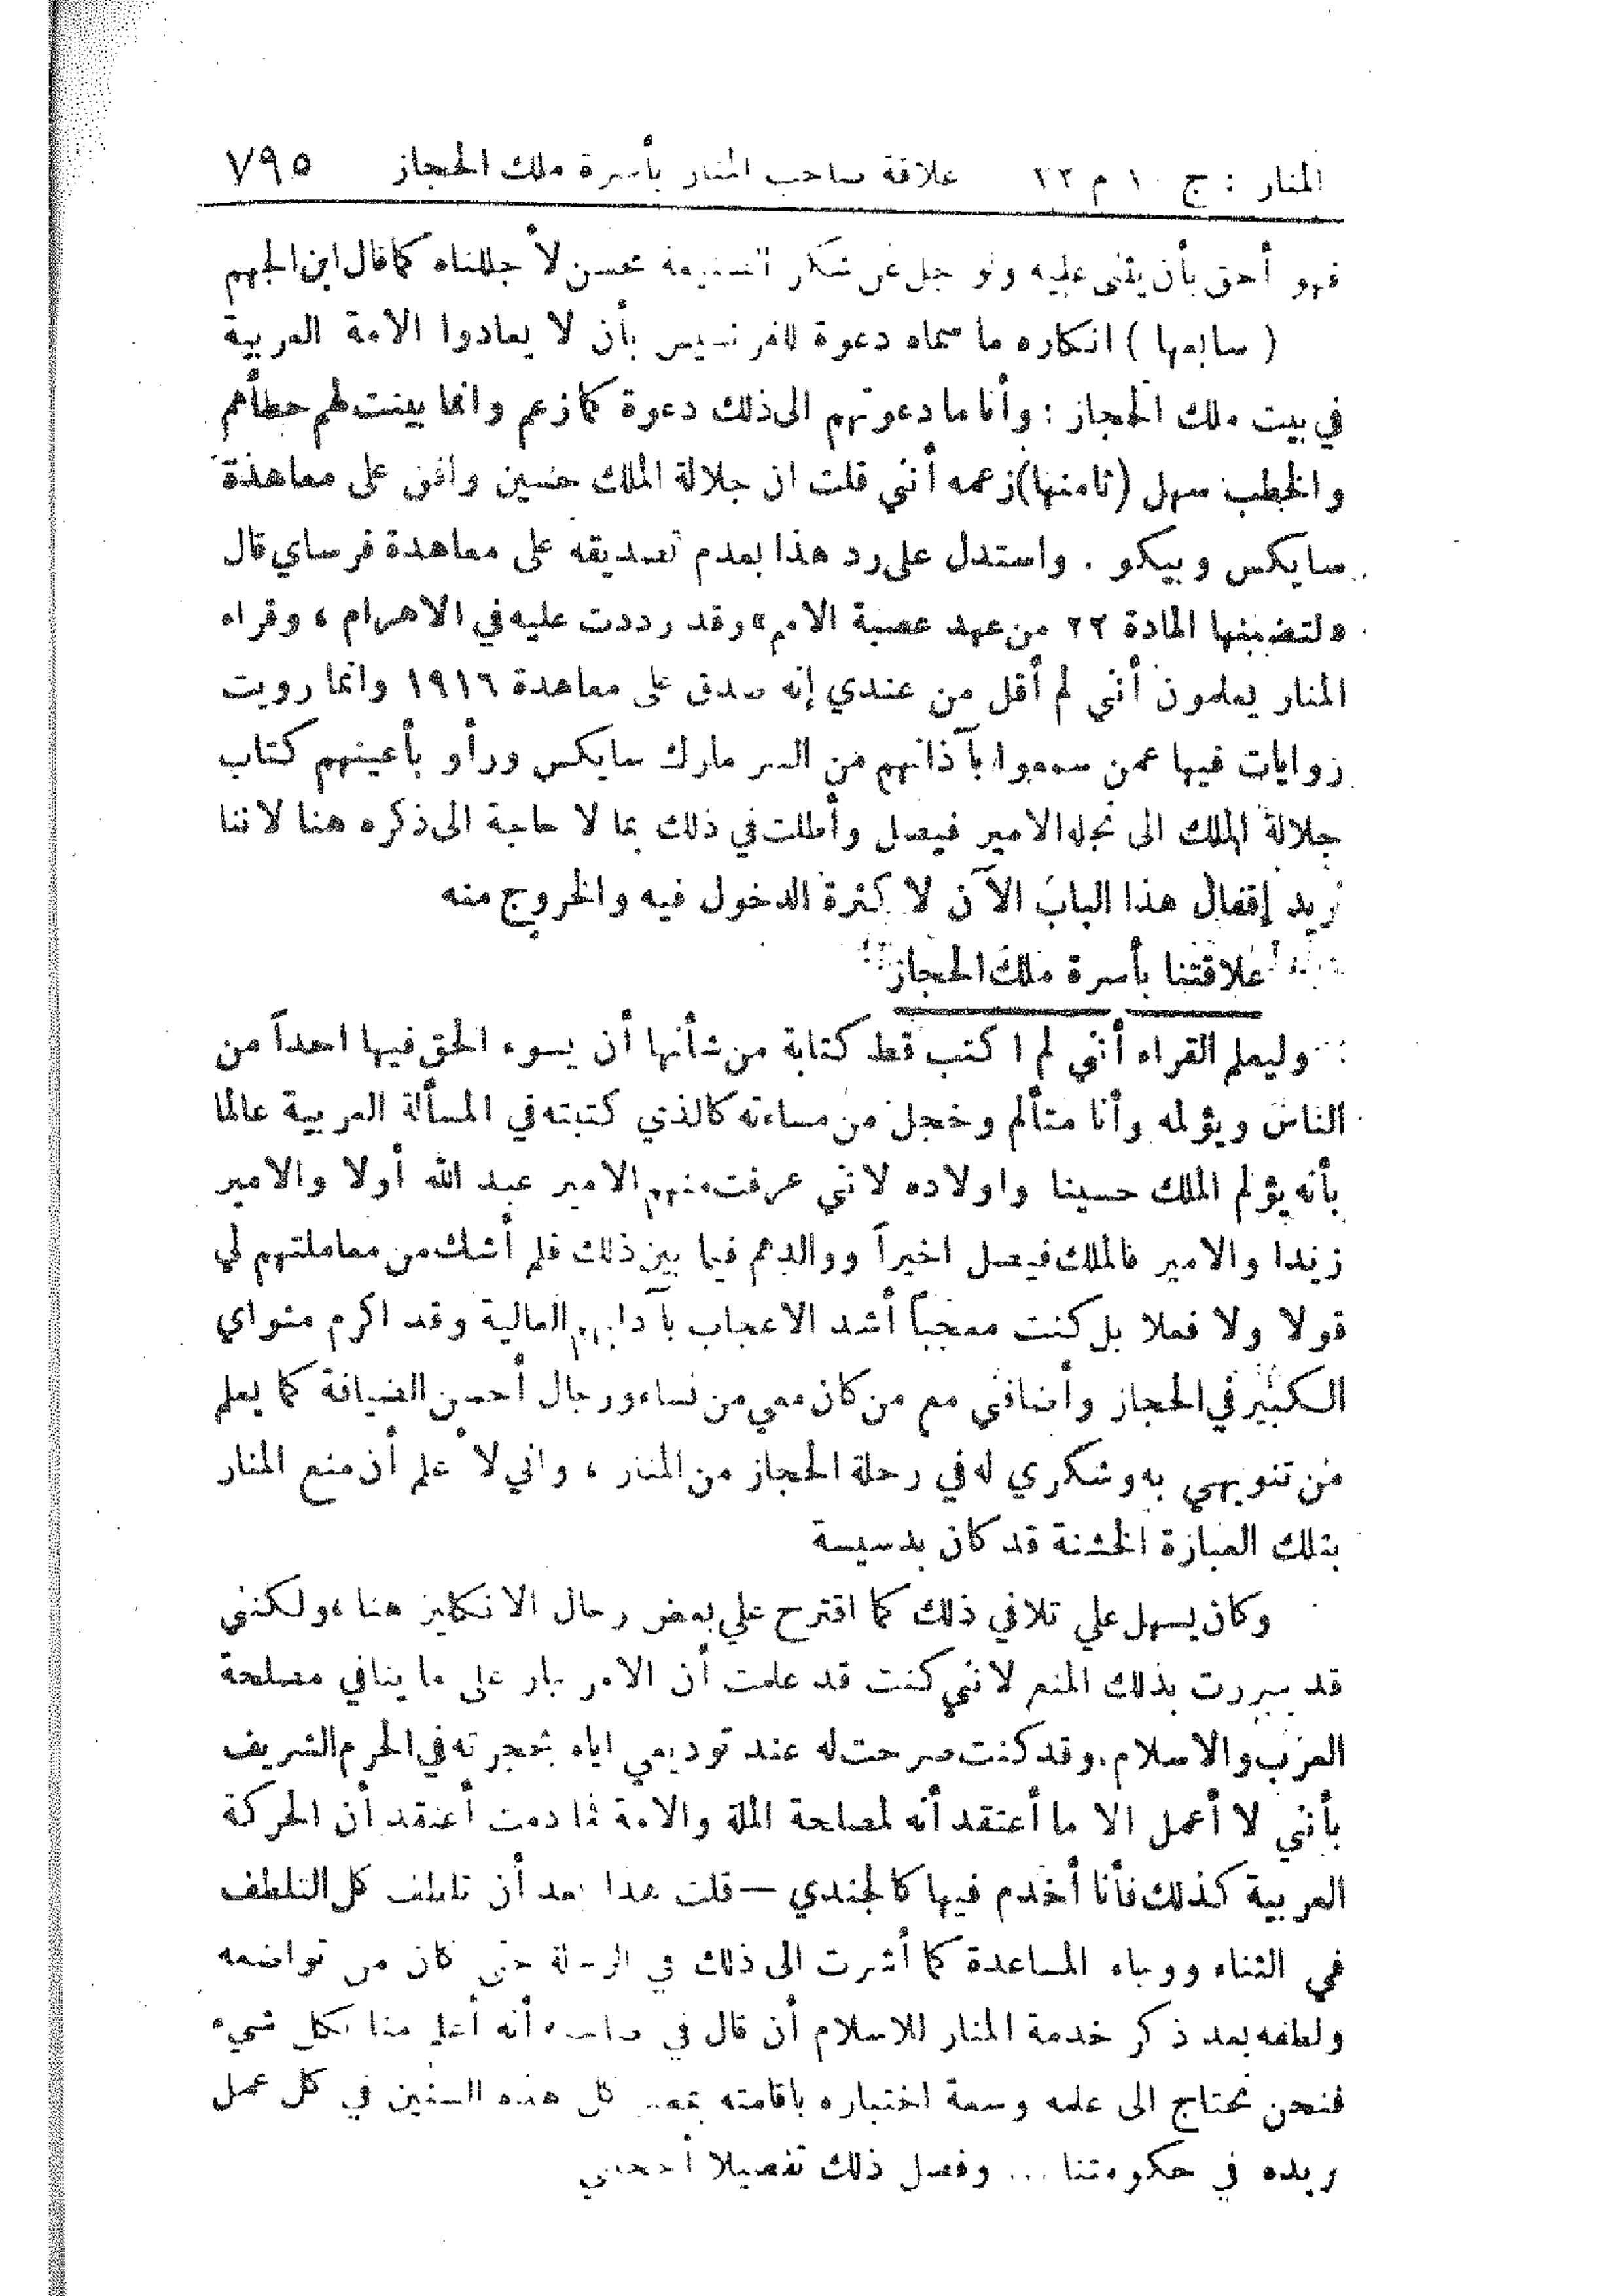 المنار : ج ١٠ م ٢٢ علاقة صاحب المنار بأسرة ملك الحجاز ٧٩٥
فهو أحق بأن يثنى عليه ولو جل عن شكر الصنيعة محسن لأجللناه كما قال ابن الجهم
( سابعها ) انكاره ما سماه دعوة للفرنسيس بأن لا يعادوا الامة العربية
في بيت ملك الحجاز : وأنا ما دعوتهم الى ذلك دعوة كما زعم وانما بينت لهم خطأهم
والخطب سهل (ثامنها) زعمه أنني قلت ان جلالة الملك حسين وافق على معاهدة
سايكس وبيكو . واستدل على رد هذا بعدم تصديقه على معاهدة فرساي قال
«لتضمنها المادة ٢٢ من عهد عصبة الامم» وقد رددت عليه في الاهرام ، وقراء
المنار يعلمون أنني لم أقل من عندي إنه صدق على معاهدة ١٩١٦ وانما رويت
روايات فيها عمن سمعوا بآذانهم من السر مارك سايكس ورأو بأعينهم كتاب
جلالة الملك الى نجله الامير فيصل وأطلت في ذلك بما لا حاجة الى ذكره هنا لاننا
نريد إقفال هذا الباب الآن لا كثرة الدخول فيه والخروج منه
علاقتنا بأسرة ملك الحجاز
وليعلم القراء أنني لم اكتب قط كتابة من شأنها أن يسوء الحق فيها احداً من
الناس ويؤلمه وأنا متألم وخجل من مساءته كالذي كتبته في المسألة العربية عالما
بأنه يؤلم الملك حسينا واولاده لانني عرفت منهم الامير عبد الله أولا والامير
زيدا والامير فالملك فيصل اخيراً ووالدهم فيما بين ذلك فلم أشك من معاملتهم لي
قولا ولا فعلا بل كنت معجباً أشد الاعجاب بآدابهم العالية وقد اكرم مثواي
الكبير في الحجاز وأضافني مع من كان معي من نساء ورجال أحسن الضيافة كما يعلم
من تنويهي به وشكري له في رحلة الحجاز من المنار ، واني لأعلم أن منع المنار
بتلك العبارة الخشنة قد كان بدسيسة
وكان يسهل علي تلافي ذلك كما اقترح علي بعض رجال الانكليز هنا ، ولكنني
قد سررت بذلك المنع لانني كنت قد علمت أن الامر جار على ما ينافي مصلحة
العرب والاسلام. وقد كنت صرحت له عند توديعي اياه بحجرته في الحرم الشريف
بأنني لا أعمل الا ما أعتقد أنه لمصلحة الملة والامة فما دمت أعتقد أن الحركة
العربية كذلك فأنا أخدم فيها كالجندي — قلت هذا بعد أن تلطف كل التلطف
في الثناء ورجاء المساعدة كما أشرت الى ذلك في الرحلة حتى كان من تواضعه
ولطفه بعد ذكر خدمة المنار للاسلام أن قال في صاحبه أنه أعلم منا بكل شيء
فنحن نحتاج الى علمه وسعة اختباره باقامته بمصر كل هذه السنين في كل عمل
نريده في حكومتنا ... وفصل ذلك تفصيلا